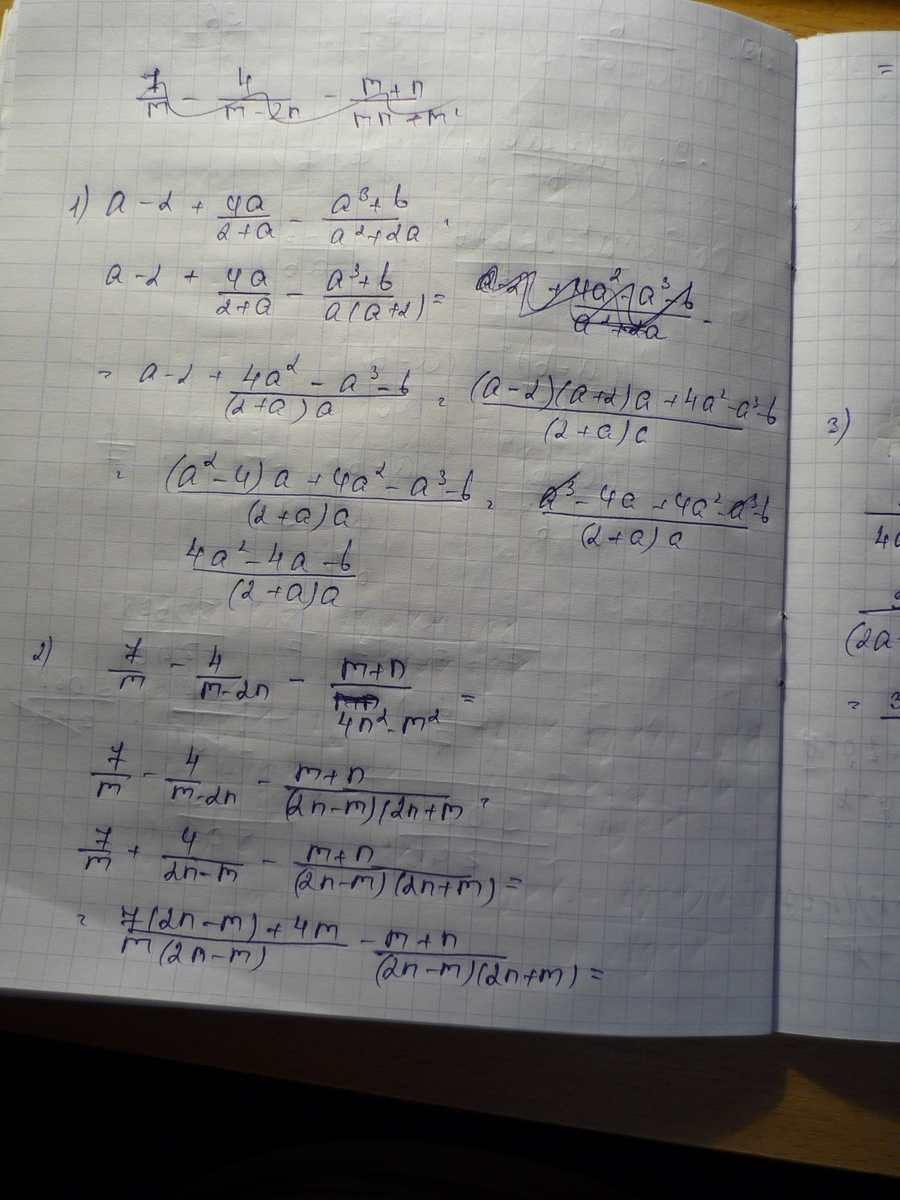 7/m - 4/(m-2n) - (m+n)/(mn+m
1) a-2 + 4a/(2+a) - (a³+b)/(a²+2a) =
a-2 + 4a/(2+a) - (a³+b)/(a(a+2)) = a-2 + (4a²-a³-b)/(a²+2a)
= a-2 + (4a²-a³-b)/((2+a)a) = ((a-2)(a+2)a+4a²-a³-b)/((2+a)a)
= ((a²-4)a+4a²-a³-b)/((2+a)a) = (a³-4a+4a²-a³-b)/((2+a)a)
(4a²-4a-b)/((2+a)a)
2) 7/m - 4/(m-2n) - (m+n)/(4n²-m²) =
7/m - 4/(m-2n) - (m+n)/((2n-m)(2n+m) =
7/m + 4/(2n-m) - (m+n)/((2n-m)(2n+m)) =
= (7(2n-m)+4m)/(m(2n-m)) - (m+n)/((2n-m)(2n+m)) =
=
3)
4a
(2a-
= 3